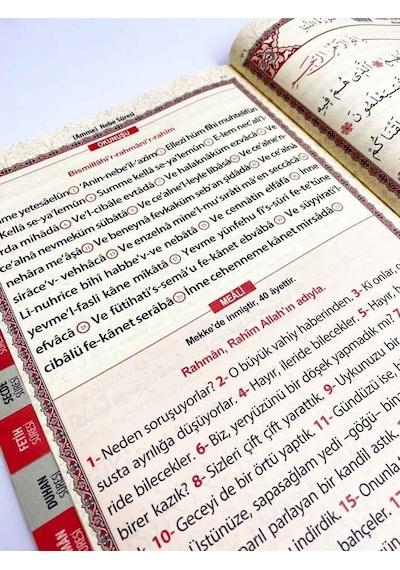 (Amme) Nebe Sûresi
OKUNUŞU
Bismillâhi'r-rahmâni'r-rahîm
me yetesâelûn 'Anin-nebei'l-'azîm Ellezî hüm fîhi muhtelifûn
Kellâ se-ya'lemûn Sümme kellâ se-ya'lemûn E-lem nec'ali'l
rda mihâdâ Ve'l-cibâle evtâdâ Ve halaknâküm ezvâcâ Ve
ce'alnâ nevmeküm sübâtâ Ve ce'alne'l-leyle libâsâ Ve ce'alne'n
nehâra me'âşâ Ve beneynâ fevkaküm seb'an şidâdâ Ve ce'alnâ
sirâce'v-vehhâcâ Ve enzelnâ mine'l-mu'sırâti mâ'en seccâcâ
Li-nuhrice bihî habbe'v-ve nebâtâ Ve cennâtin elfâfâ İnne
yevme'l-fasli kâne mîkâtâ Yevme yünfehu fi's-sûri fe-te'tûne
efvâcâ Ve fütihati's-semâ'u fe-kânet ebvâbâ Ve süyyirati'l
cibâlü fe-kânet serâbâ İnne cehenneme kânet mirsâdâ
MEALİ
Mekke'de inmiştir. 40 âyettir.
Rahmân, Rahîm Allah'ın adıyla.
1- Neden soruşuyorlar? 2- O büyük vahiy haberinden. 3- Ki onlar
susta ayrılığa düşüyorlar. 4- Hayır, ileride bilecekler. 5- Hayır
ride bilecekler. 6- Biz, yeryüzünü bir döşek yapmadık mı? 7-
birer kazık? 8- Sizleri çift çift yarattık. 9- Uykunuzu bir
10- Geceyi de bir örtü yaptık. 11- Gündüzü ise,
Üstünüze, sapasağlam yedi -göğü- bina
parıl parlayan bir kandil astık.
indirdik. 15- Onunla
bahçeler. 17-
SEDE
SÛRESİ
FETİH
SÛRESİ
DUHAN
SÛRESİ